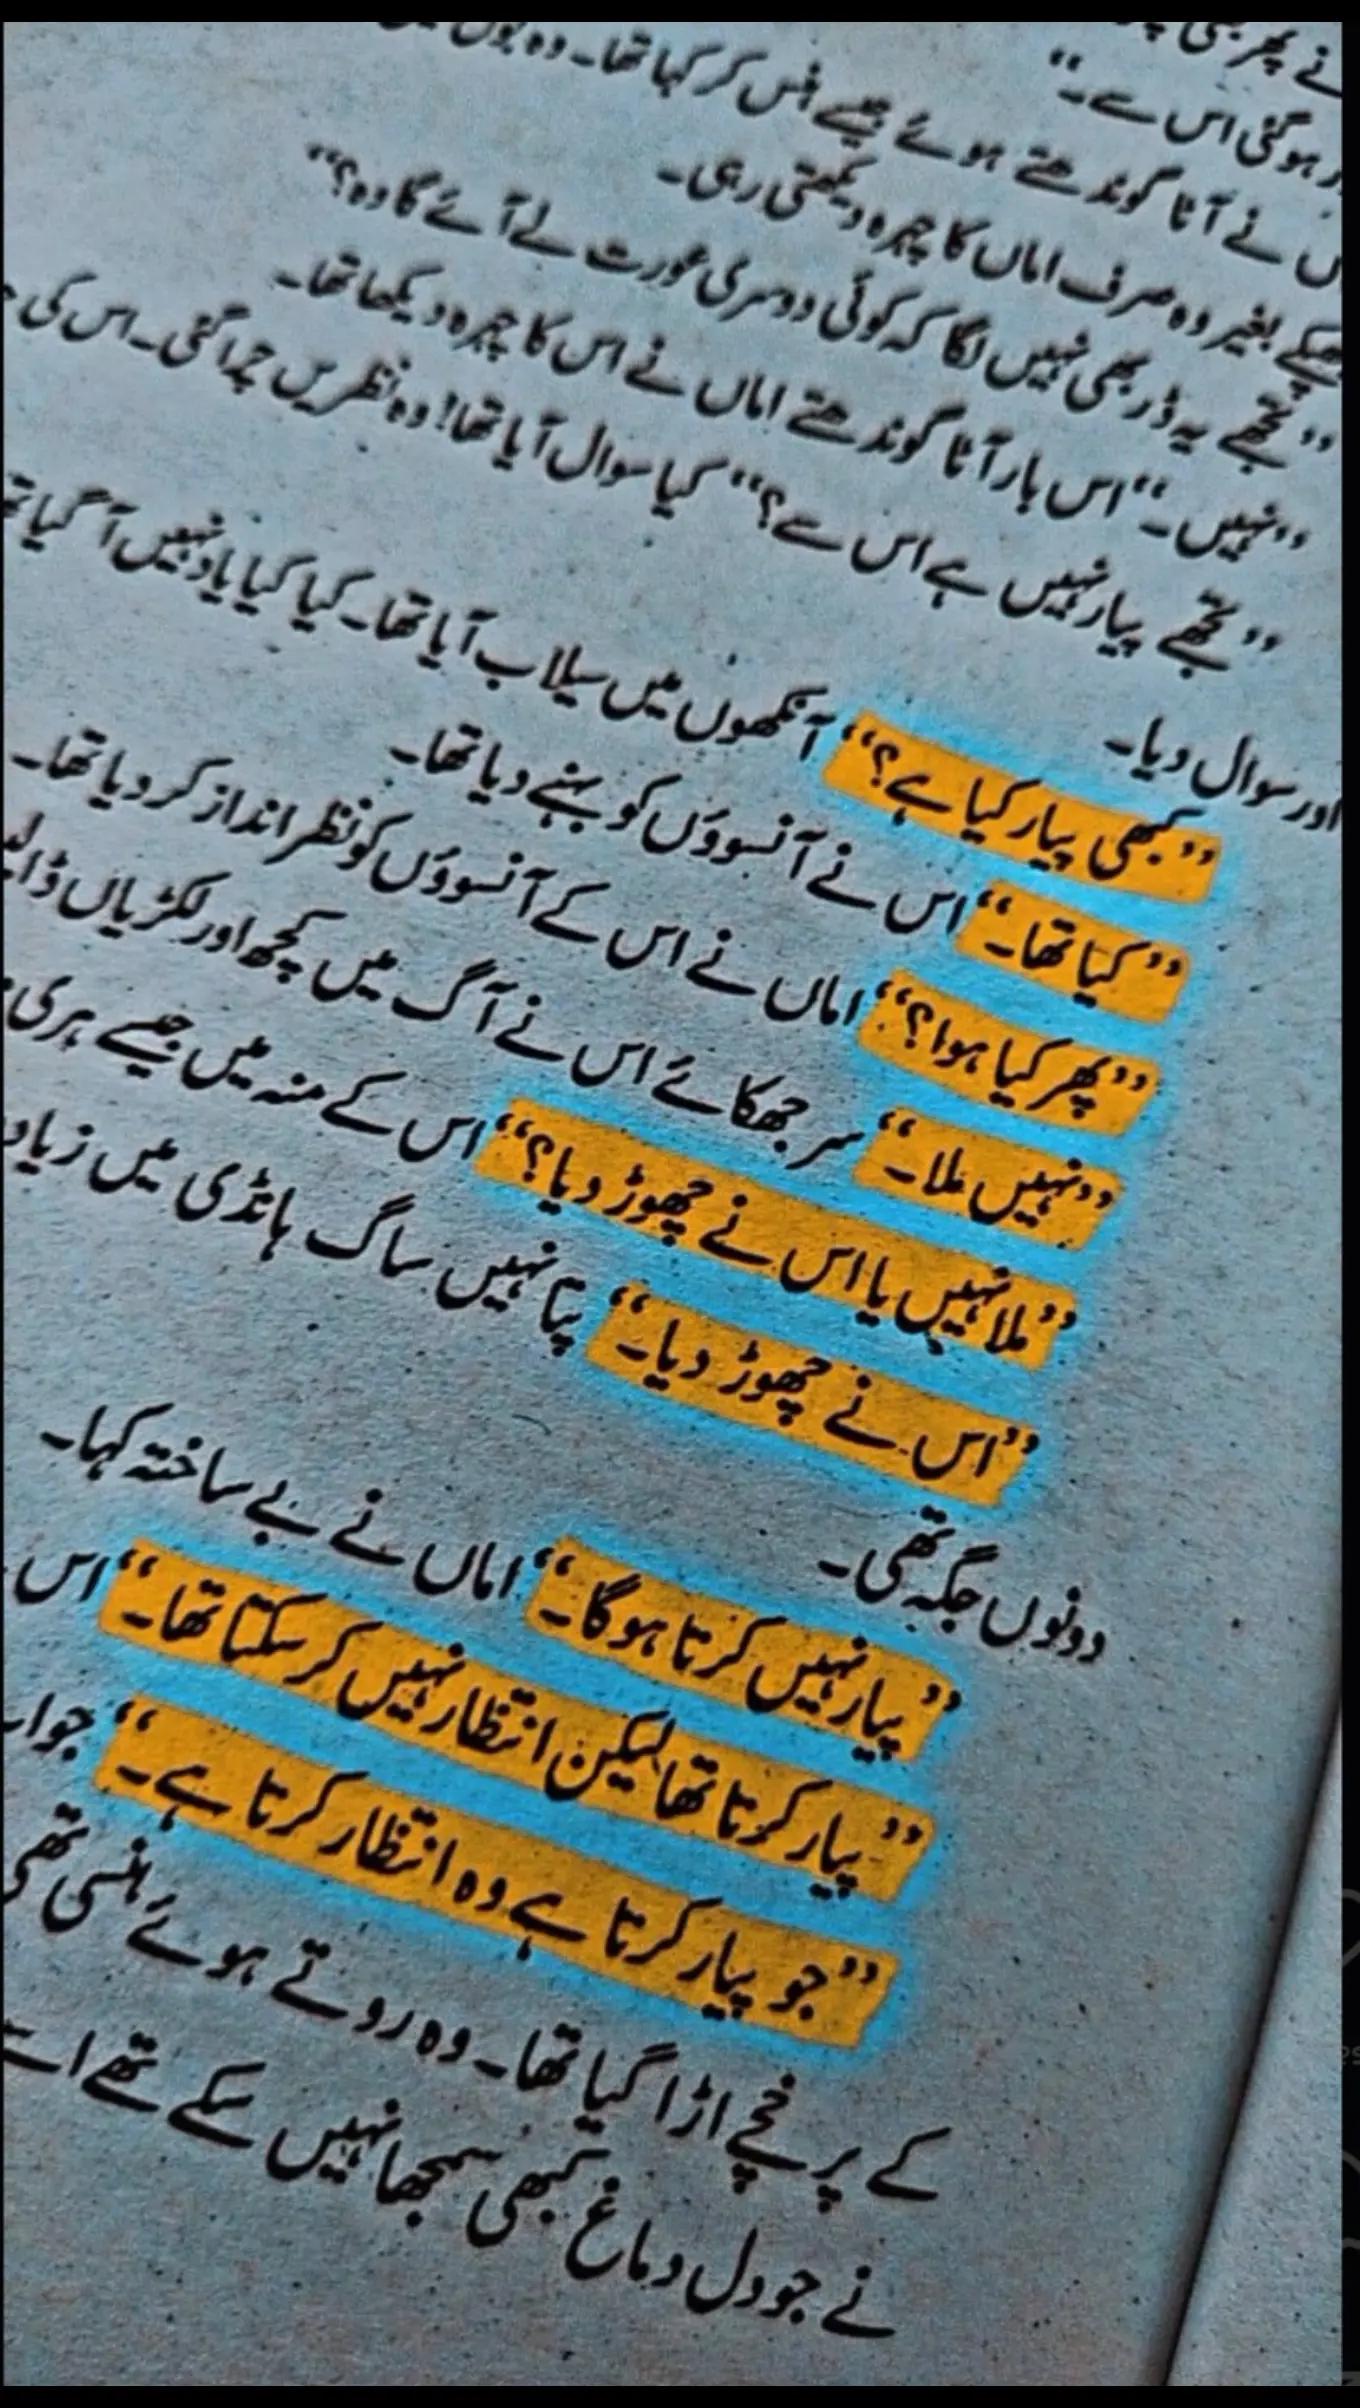 نے پھر بھی
ہوگئی اس سے۔“
نے آٹا گوندھتے ہوئے جیسے ہنس کر کہا تھا۔ وہ یوں
بغیر وہ صرف اماں کا چہرہ دیکھتی رہی۔
”تجھے یہ ڈر بھی نہیں لگا کہ کوئی دوسری عورت لے آئے گا وہ؟“
”نہیں۔“ اس بار آٹا گوندھتے اماں نے اس کا چہرہ دیکھا تھا۔
”تجھے پیار نہیں ہے اس سے؟“ کیا سوال آیا تھا! وہ نظریں چرا گئی۔ اس کی
اور سوال دیا۔
”کبھی پیار کیا ہے؟“ آنکھوں میں سیلاب آیا تھا۔ کیا کیا یاد نہیں آ گیا
”کیا تھا۔“ اس نے آنسوؤں کو بہنے دیا تھا۔
”پھر کیا ہوا؟“ اماں نے اس کے آنسوؤں کو نظر انداز کر دیا تھا۔
”نہیں ملا۔“ سر جھکائے اس نے آگ میں کچھ اور لکڑیاں
”ملا نہیں یا اس نے چھوڑ دیا؟“ اس کے منہ میں جیسے ہری
”اس نے چھوڑ دیا۔“ پتا نہیں ساگ ہانڈی میں زیادہ
دونوں جگہ تھی۔
”پیار نہیں کرتا ہوگا۔“ اماں نے بے ساختہ کہا۔
”پیار کرتا تھا لیکن انتظار نہیں کر سکتا تھا۔“ اس
”جو پیار کرتا ہے وہ انتظار کرتا ہے۔“
کے پرخچے اڑا گیا تھا۔ وہ روتے ہوئے ہنسی تھی
نے جو دل و دماغ کبھی سمجھا نہیں سکے تھے